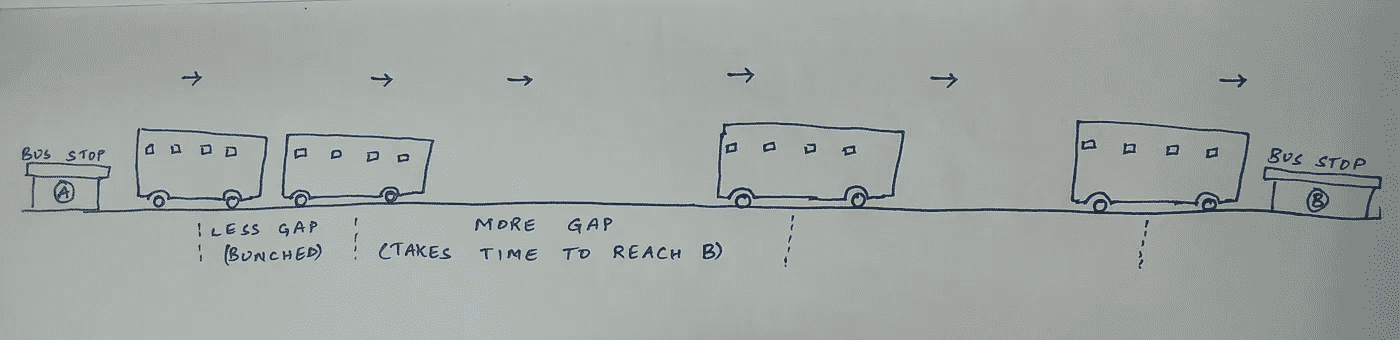 BUS STOP
A
BUS STOP
B
LESS GAP
(BUNCHED)
MORE GAP
(TAKES TIME TO REACH B)